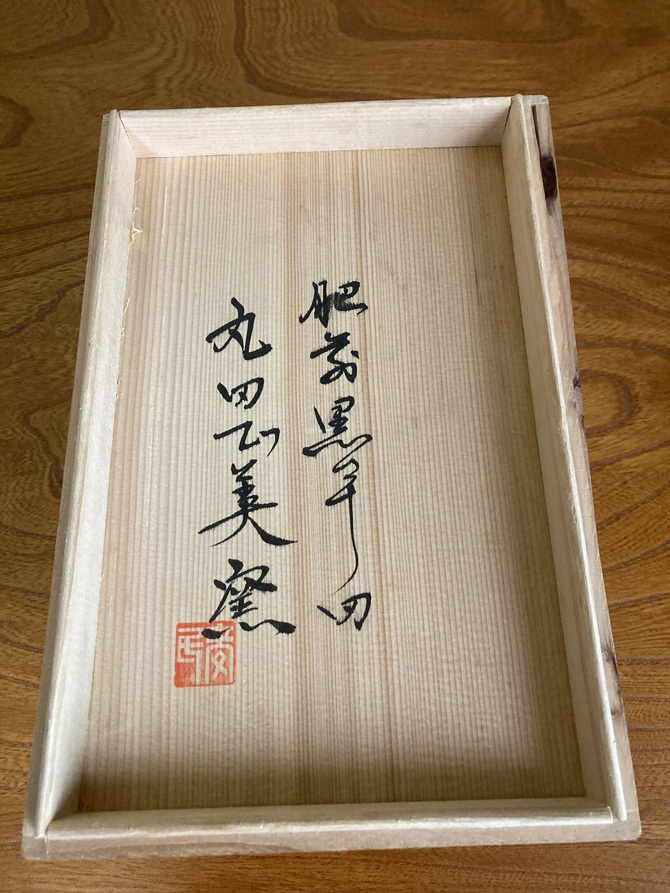 肥前黒牟田
丸田正美窯